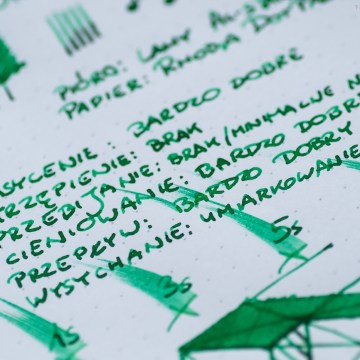 PIÓRO: LAMY AL-STAR
PAPIER: RHODIA DOTPAD
NASYCENIE: BARDZO DOBRE
STRZĘPIENIE: BRAK
PRZEBIJANIE: BRAK/MINIMALNE
CIENIOWANIE: BARDZO DOBRE
PRZEPŁYW: BARDZO DOBRY
WYSYCHANIE: UMIARKOWANIE
5s
3s
1s